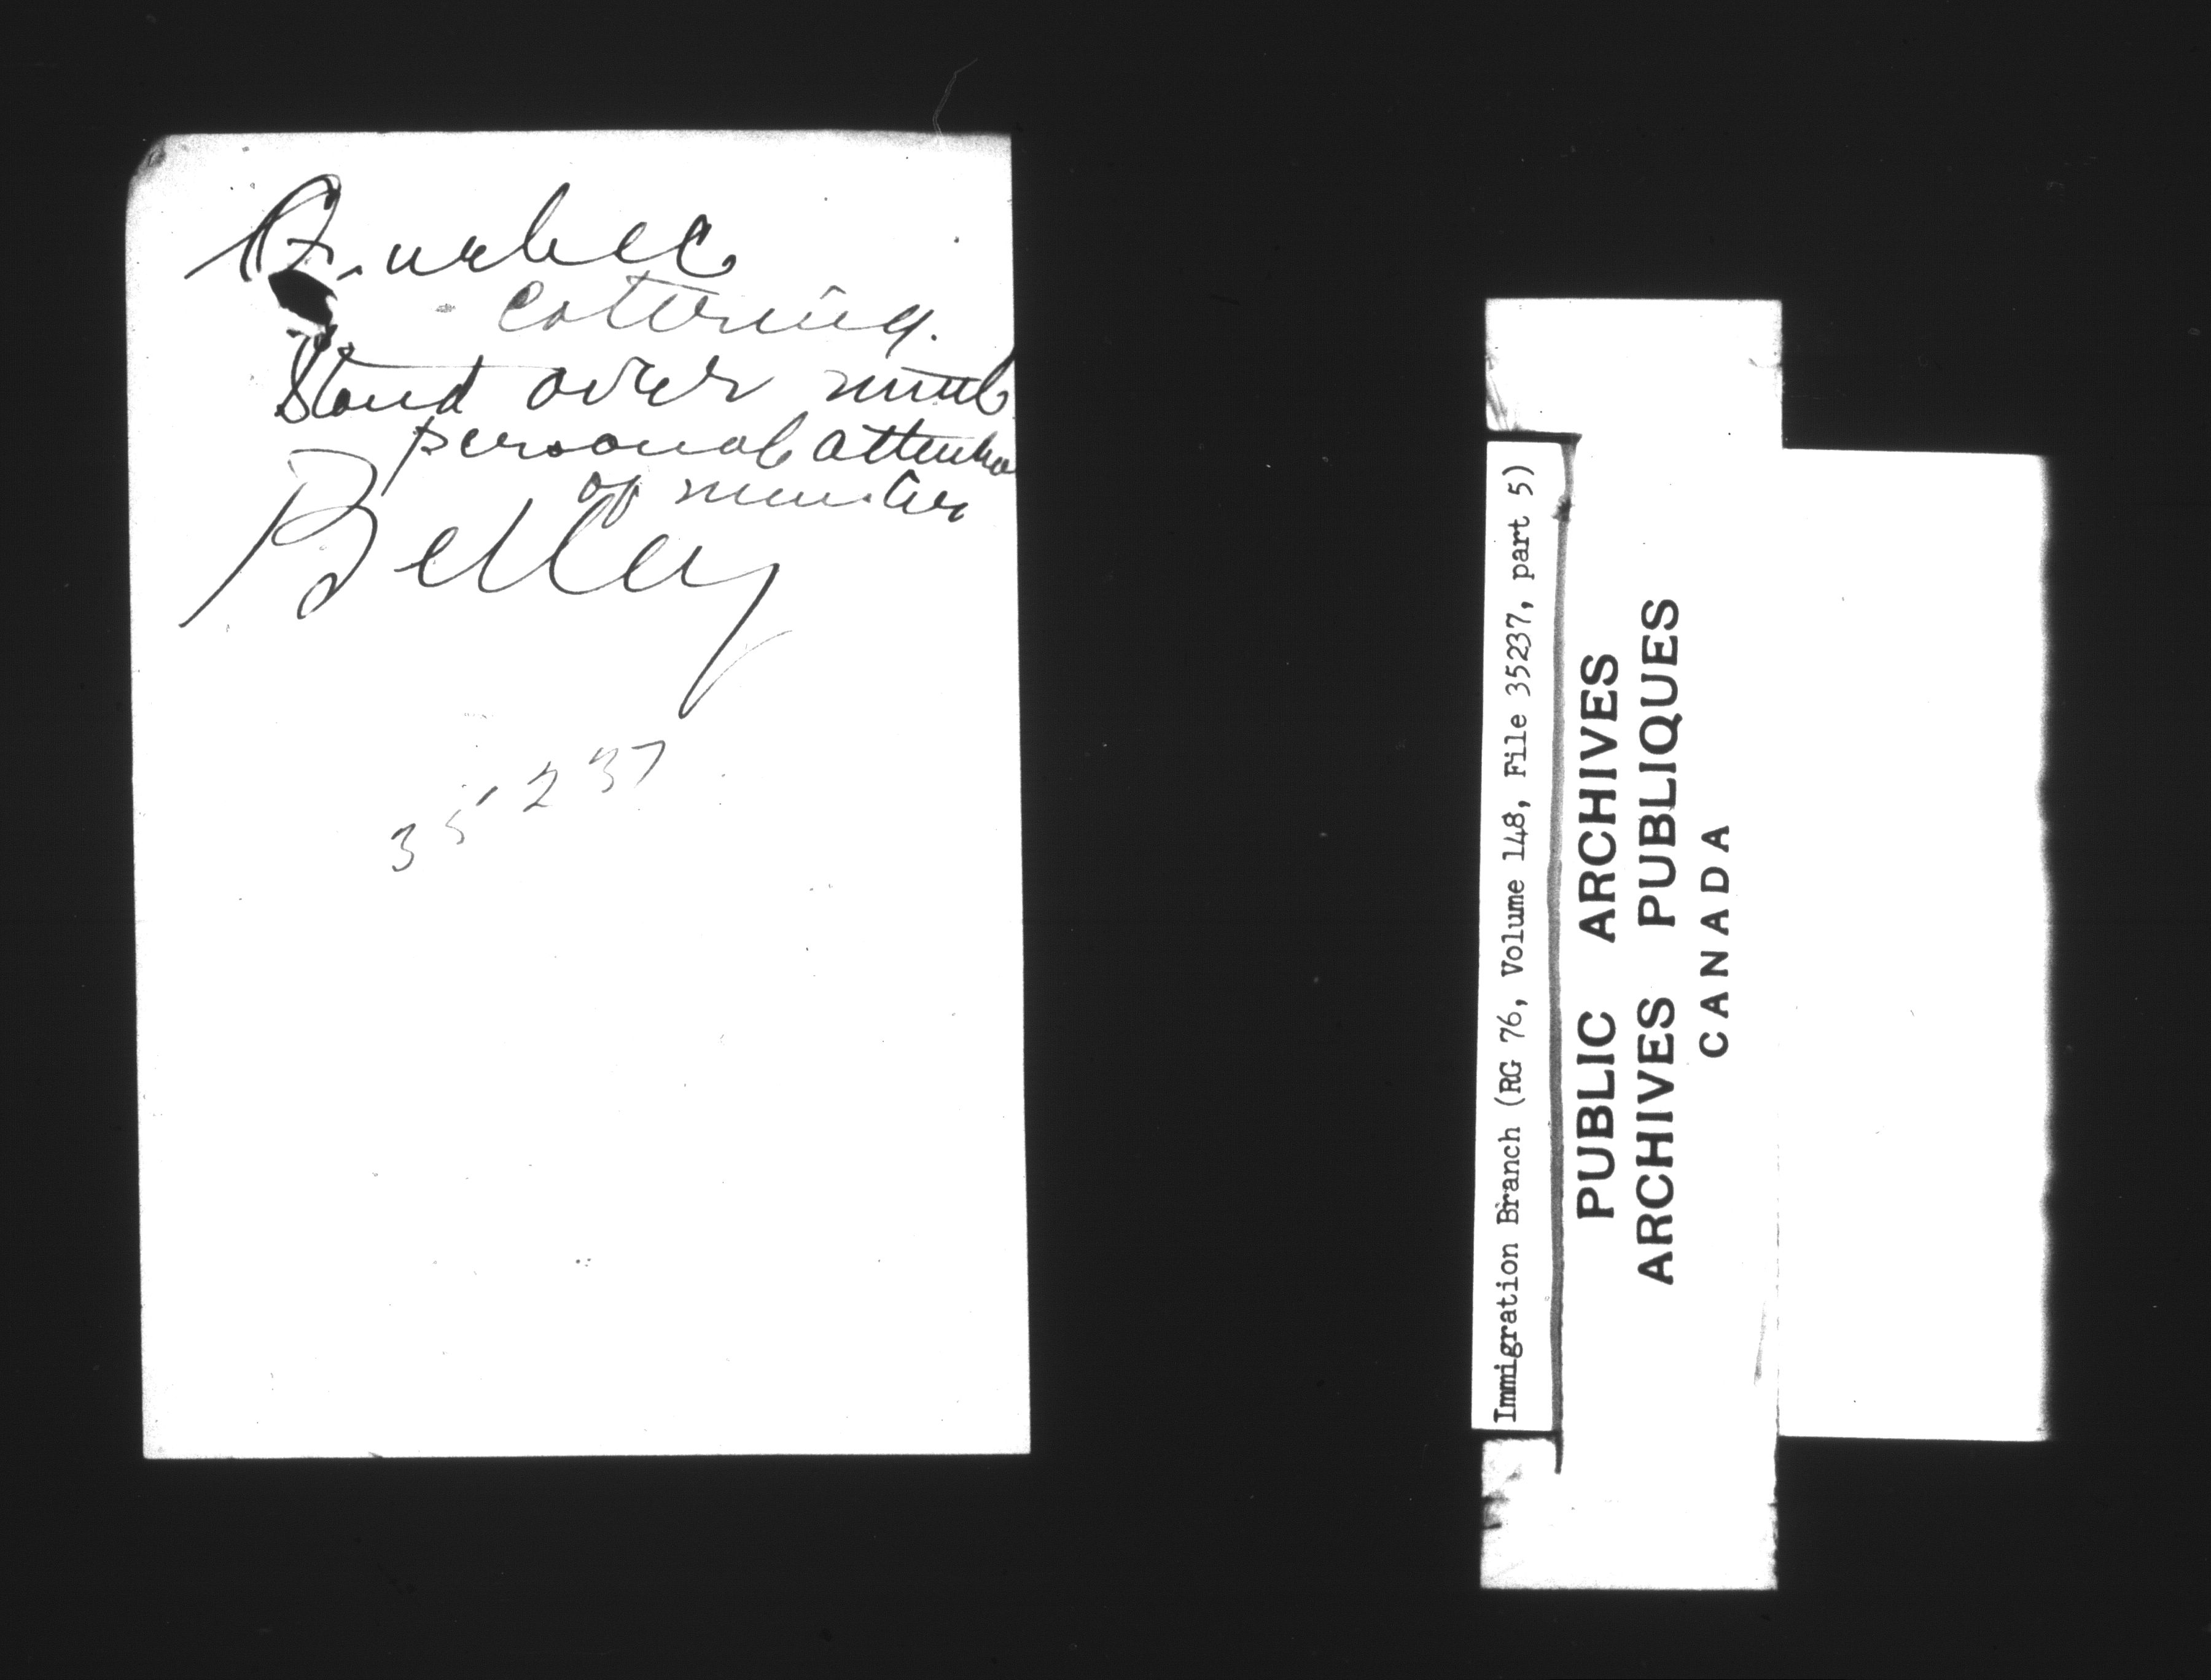 Quebec
Catering.
Stand over until
personal attention
of minister
35237
Immigration Branch (RG 76, Volume 148, File 35237, part 5)
PUBLIC ARCHIVES
ARCHIVES PUBLIQUES
CANADA